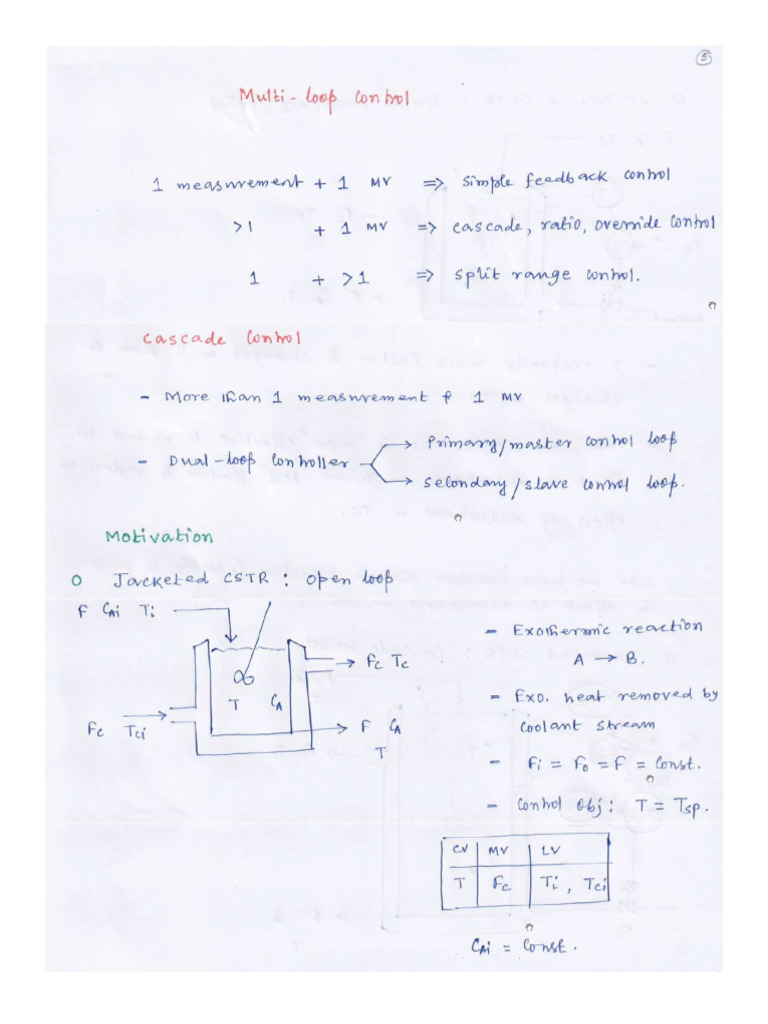 5
Multi-loop control
1 measurement + 1 MV => simple feedback control
>1 + 1 MV => cascade, ratio, override control
1 + >1 => split range control.
Cascade control
- More than 1 measurement & 1 MV
- Dual-loop controller
Primary/master control loop
Secondary/slave control loop.
Motivation
O Jacketed CSTR : open loop
F CAi Ti
Fc Tc
T CA
Fc Tci
F CA
T
- Exothermic reaction
A → B.
- Exo. heat removed by
coolant stream
- Fi = Fo = F = Const.
- Control Obj: T = Tsp.
CV MV LV
T Fc Ti, Tci
CAi = Const.